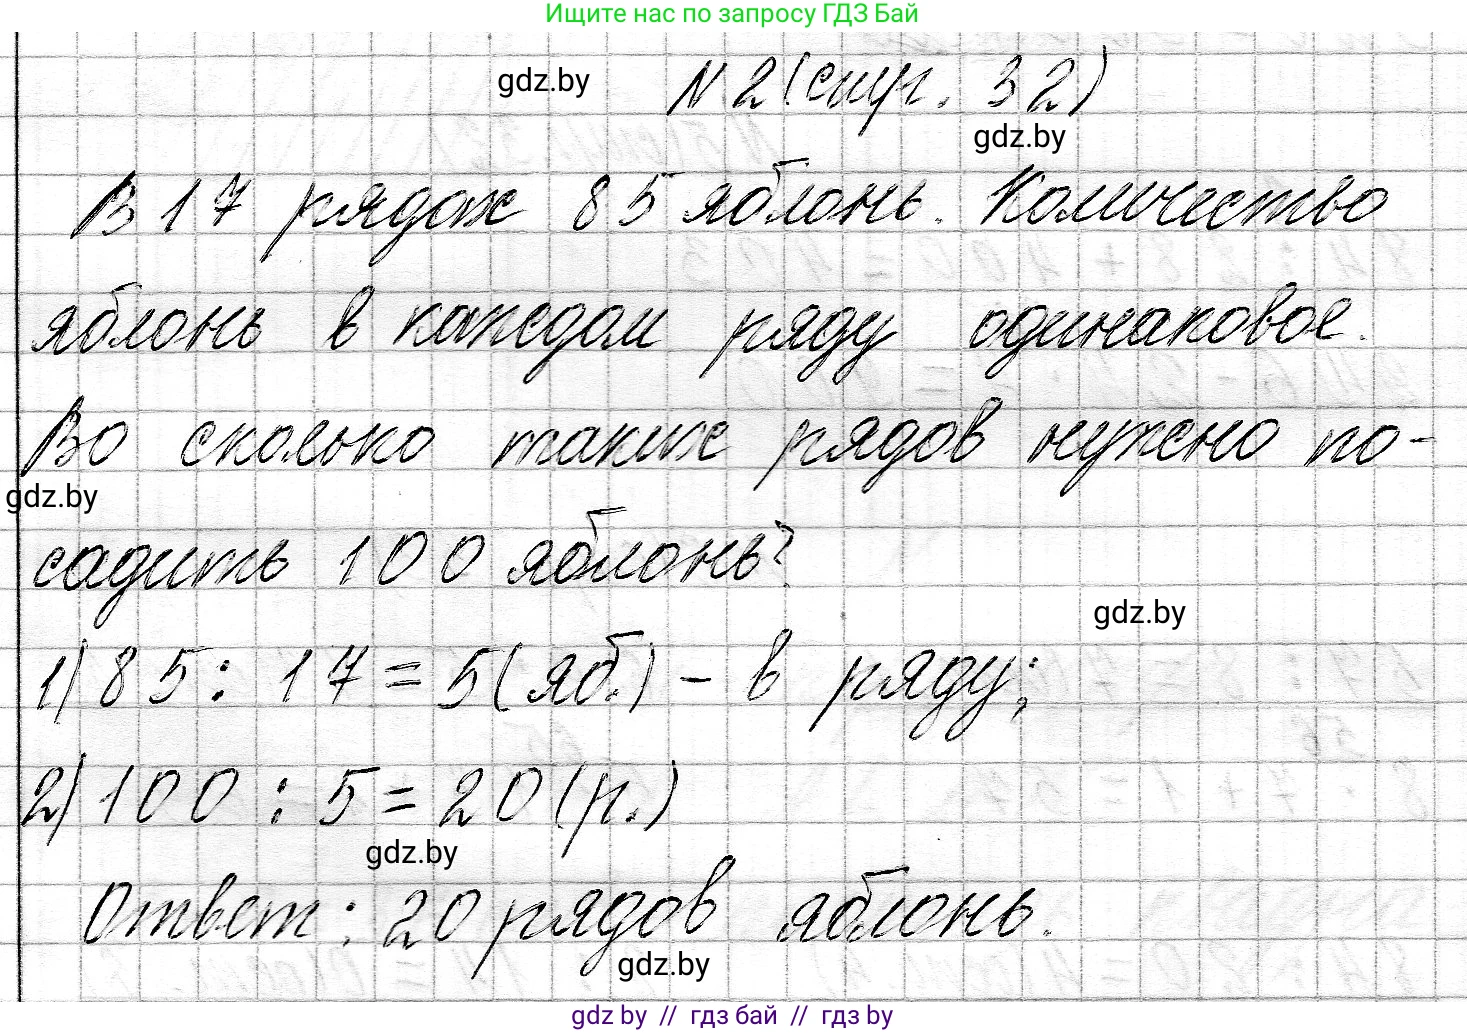 Ищите нас по запросу ГДЗ Бай
gdz.by
N 2 (стр. 32)
gdz.by
В 17 рядах 85 яблонь. Количество
яблонь в каждом ряду одинаковое.
Во сколько таких рядов нужно по-
gdz.by
садить 100 яблонь?
gdz.by
1) 85 : 17 = 5 (яб.) – в ряду;
2) 100 : 5 = 20 (р.)
gdz.by
Ответ: 20 рядов яблонь.
gdz.by
gdz by // гдз бай // гдз by